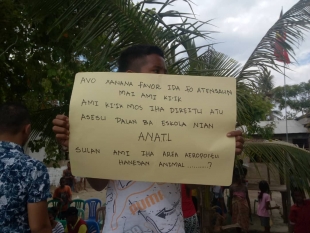 AVO NANANA FAVOR IDA FO ATENSAUN
MAI AMI KI'IK
AMI KI'IK MOS IHA DIREITU ATU
ASESU DALAN BA ESKOLA NIAN
ANATL
SULAN AMI IHA AREA AEROPORTU
HANESAN ANIMAL ........?